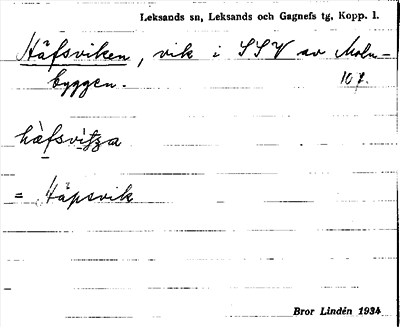 Leksands sn, Leksands och Gagnefs tg, Kopp. l.
Häfsviken, vik i SSV av Moln-
byggen.
= Häpsvik
Bror Lindén 1934